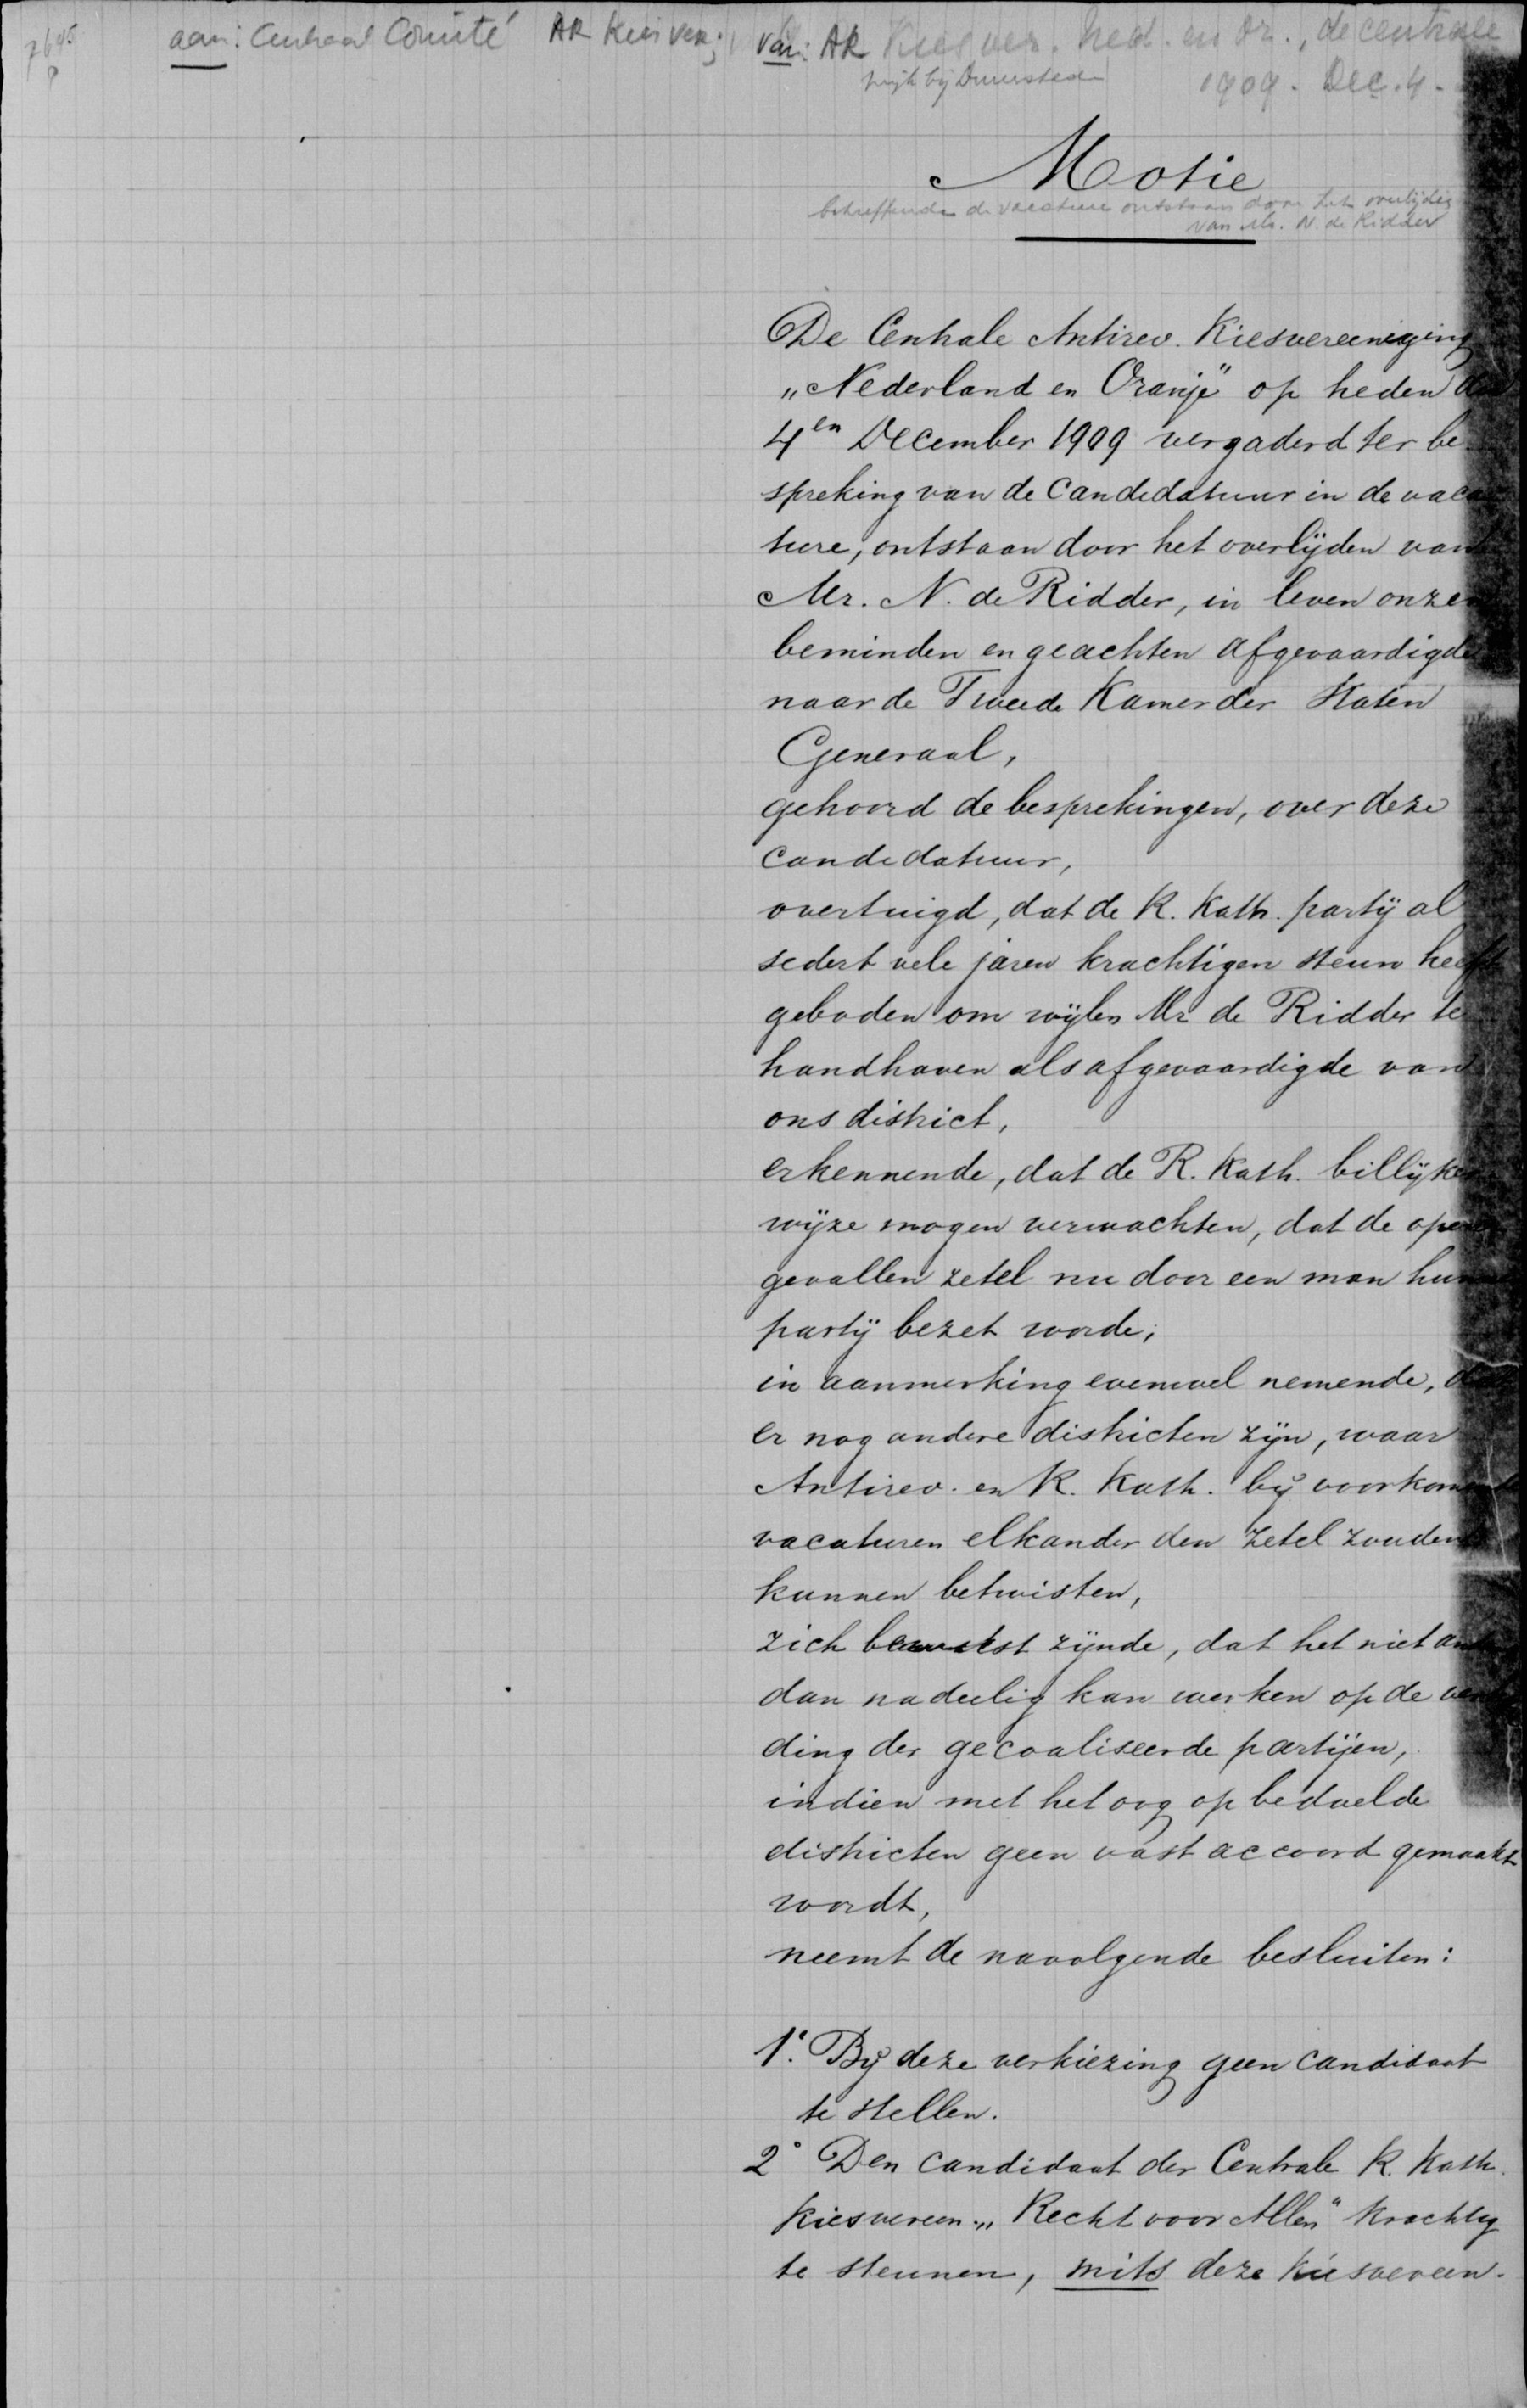 7645
aan: Centraal Comité AR Kiesver.; van: AR Kiesver. Ned. en Or., de centrale
wijk bij Duurstede 1909. Dec. 4.
Motie
betreffende de vacature ontstaan door het overlijden
van Mr. N. de Ridder
De Centrale Antirev. Kiesvereeniging
„Nederland en Oranje" op heden den
4en December 1909 vergaderd ter be-
spreking van de Candidatuur in de vaca-
ture, ontstaan door het overlijden van
Mr. N. de Ridder, in leven onzen
beminden en geachten afgevaardigde
naar de Tweede Kamer der Staten
Generaal,
gehoord de besprekingen, over deze
candidatuur,
overtuigd, dat de R. Kath. partij al
sedert vele jaren krachtigen steun heeft
geboden om wijlen Mr de Ridder te
handhaven als afgevaardigde van
ons district,
erkennende, dat de R. Kath. billijker
wijze mogen verwachten, dat de open
gevallen zetel nu door een man hunner
partij bezet worde;
in aanmerking evenwel nemende, dat
er nog andere districten zijn, waar
Antirev. en R. Kath. bij voorkomende
vacaturen elkander den zetel zouden
kunnen betwisten,
zich bewust zijnde, dat het niet anders
dan nadeelig kan werken op de
ding der gecoaliseerde partijen,
indien met het oog op bedoelde
districten geen vast accoord gemaakt
wordt,
neemt de navolgende besluiten:
1°. Bij deze verkiezing geen candidaat
te stellen.
2° Den candidaat der Centrale R. Kath.
kiesvereen. „Recht voor Allen" krachtig
te steunen, mits deze kiesvereen.